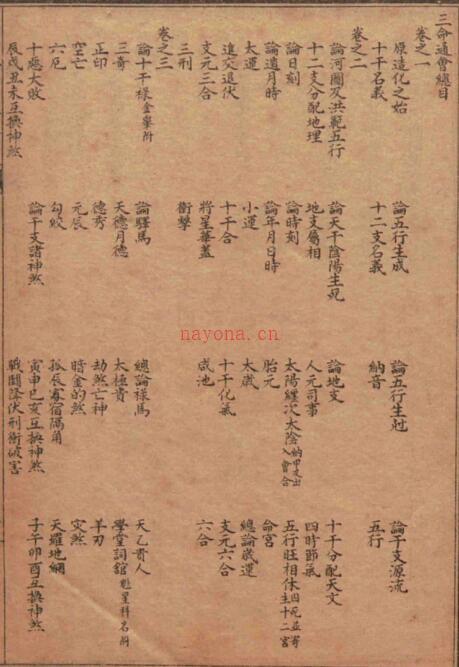 三命通會總目
卷之一
原造化之始 論五行生成 論五行生尅 論干支源流
十干名義 十二支名義 納音 五行
卷之二
論河圖及洪範五行 論天干陰陽生死 論地支 十干分配天文
十二支分配地理 地支屬相 人元司事 四時節氣
論日刻 論時刻 太陽纏次太陰納甲支出入會合 五行旺相休生囚死並寄十二宮
論遁月時 論年月日時 胎元 命宮
大運 小運 太歲 總論歲運
進交退伏 十干合 十干化氣 支元六合
支元三合 將星華蓋 咸池 六合
三刑 衝擊
卷之三
論十干祿金轝附 論驛馬 總論祿馬 天乙貴人
三奇 天德月德 太極貴 學堂詞舘魁星科名附
正印 德秀 劫煞亡神 羊刃
空亡 元辰 暗金的煞 灾煞
六厄 勾絞 孤辰寡宿隔角 天羅地網
十惡大敗 論干支諸神煞 寅申巳亥互換神煞 子午卯酉互換神煞
辰戌丑未互換神煞 戰鬪降伏刑衝破害
nayona.cn